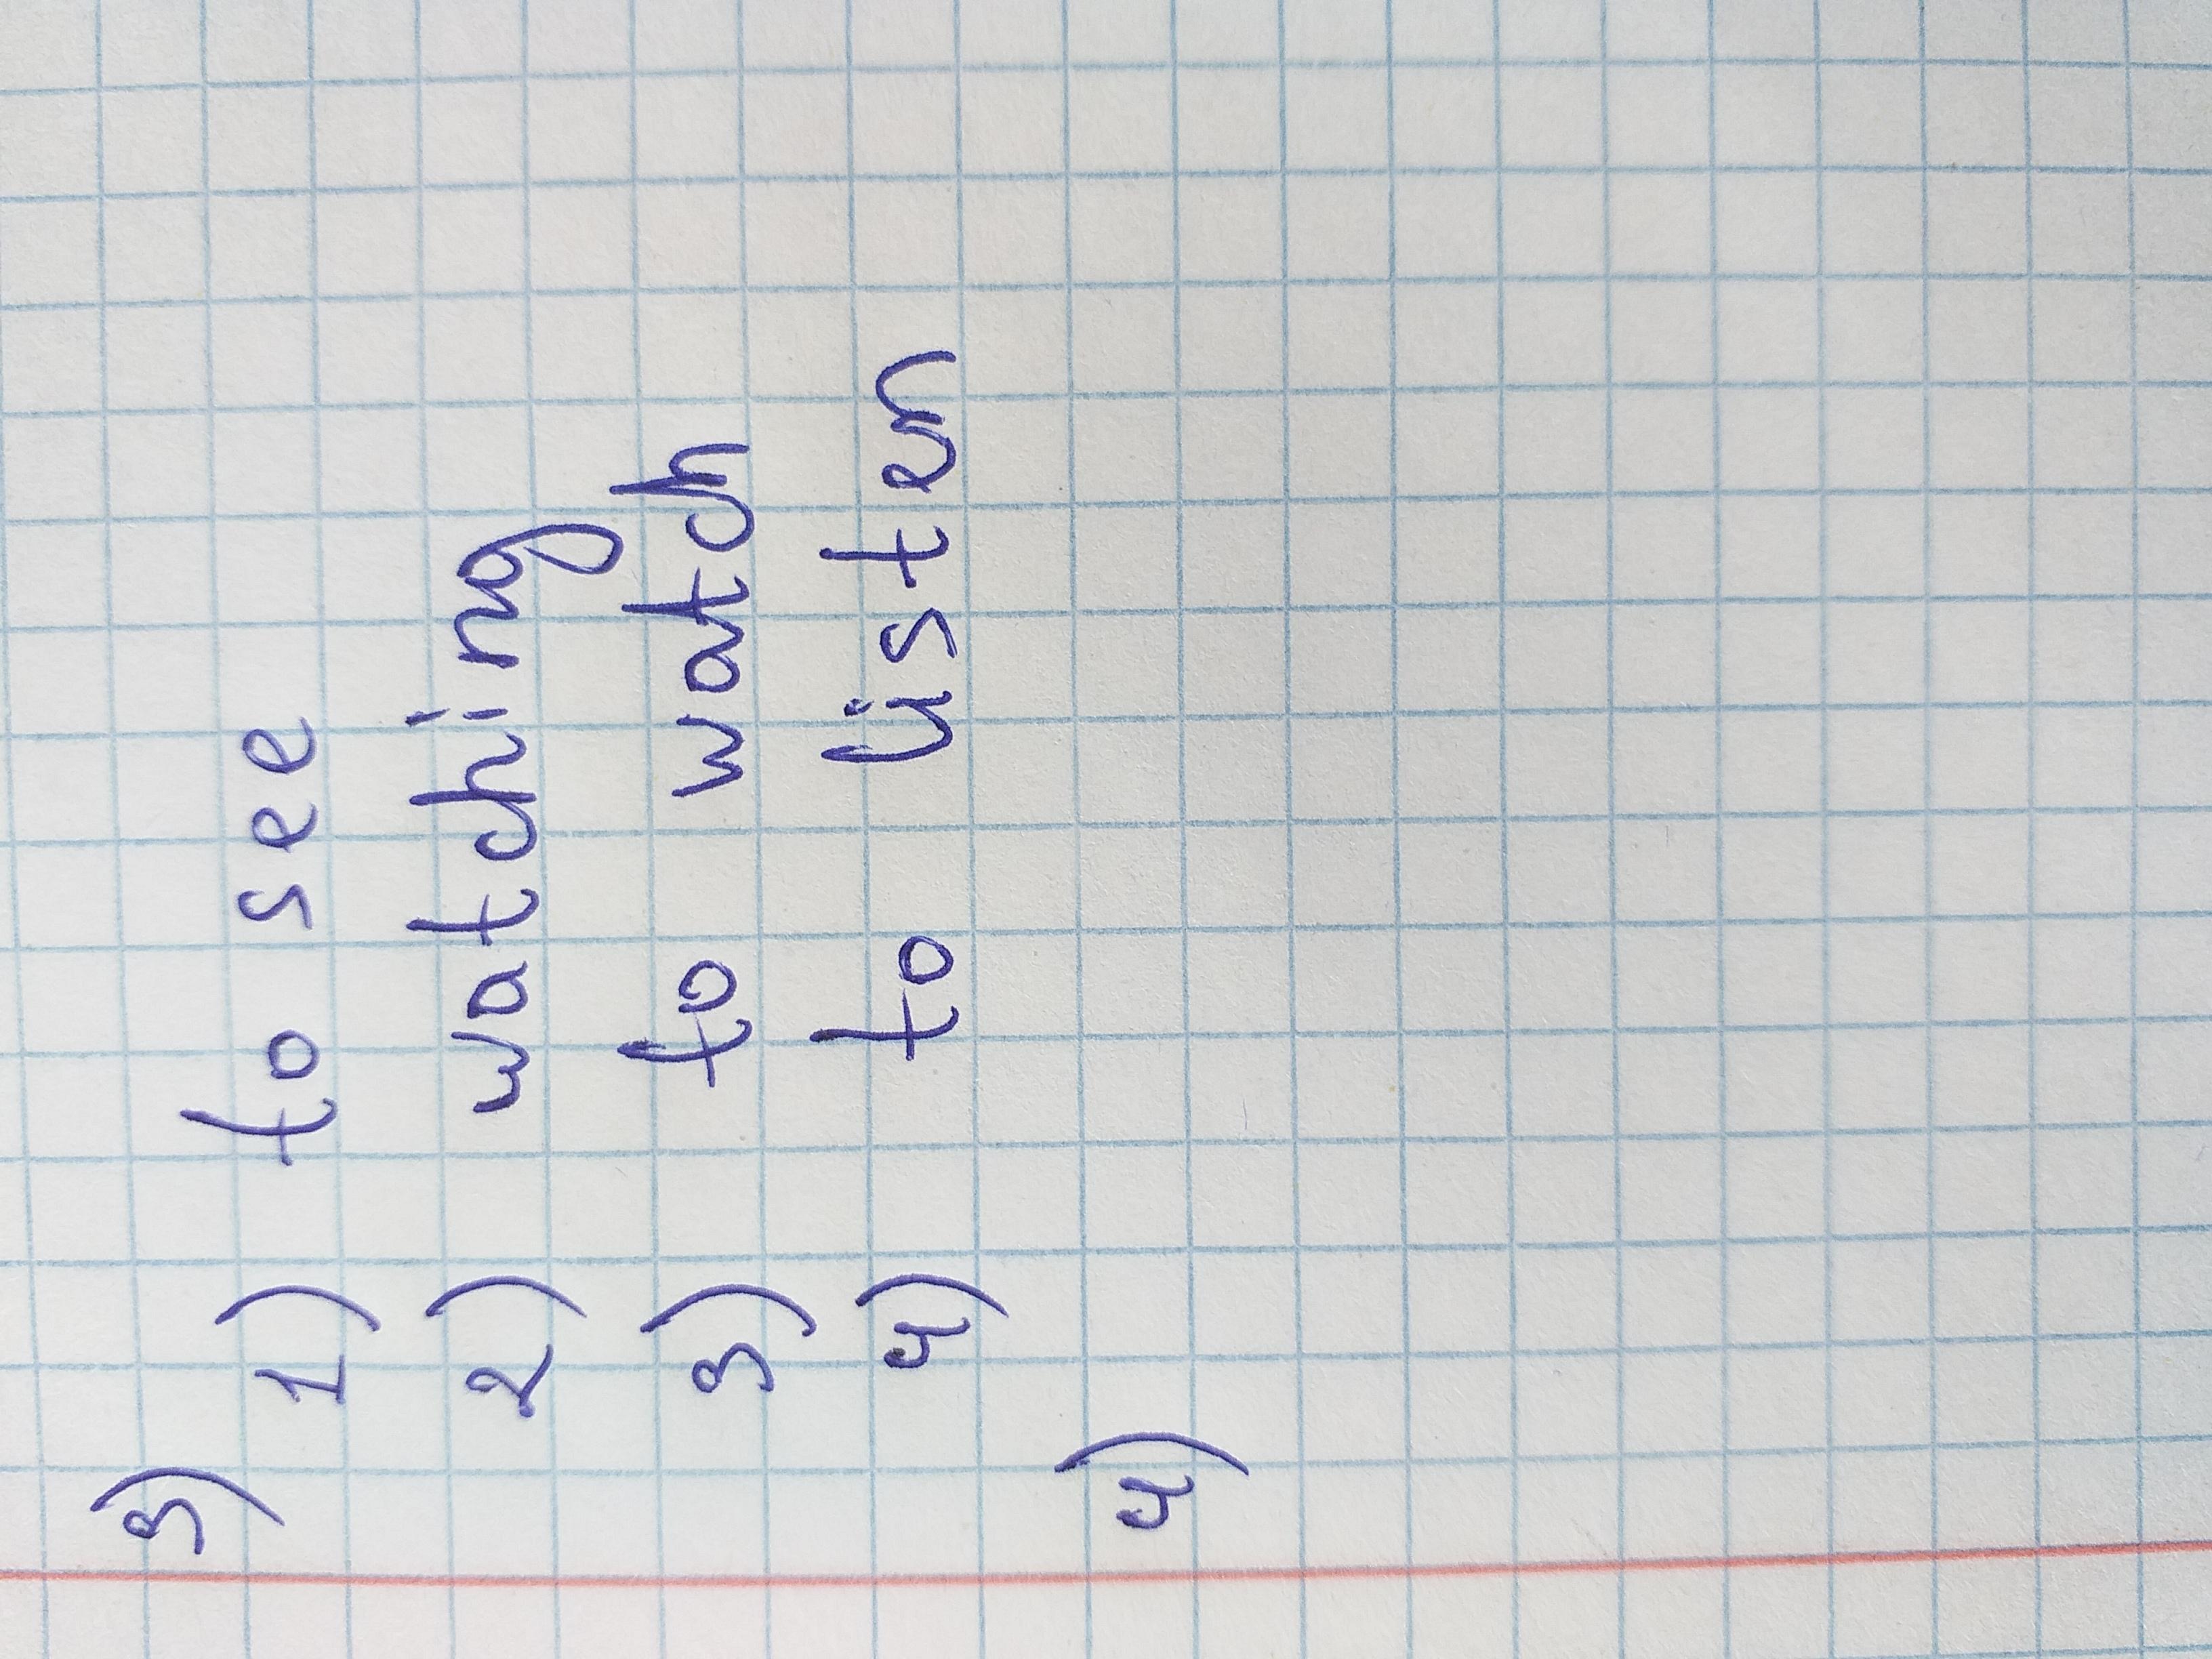 3)
1) to see
2) watching
3) to watch
4) to listen
4)